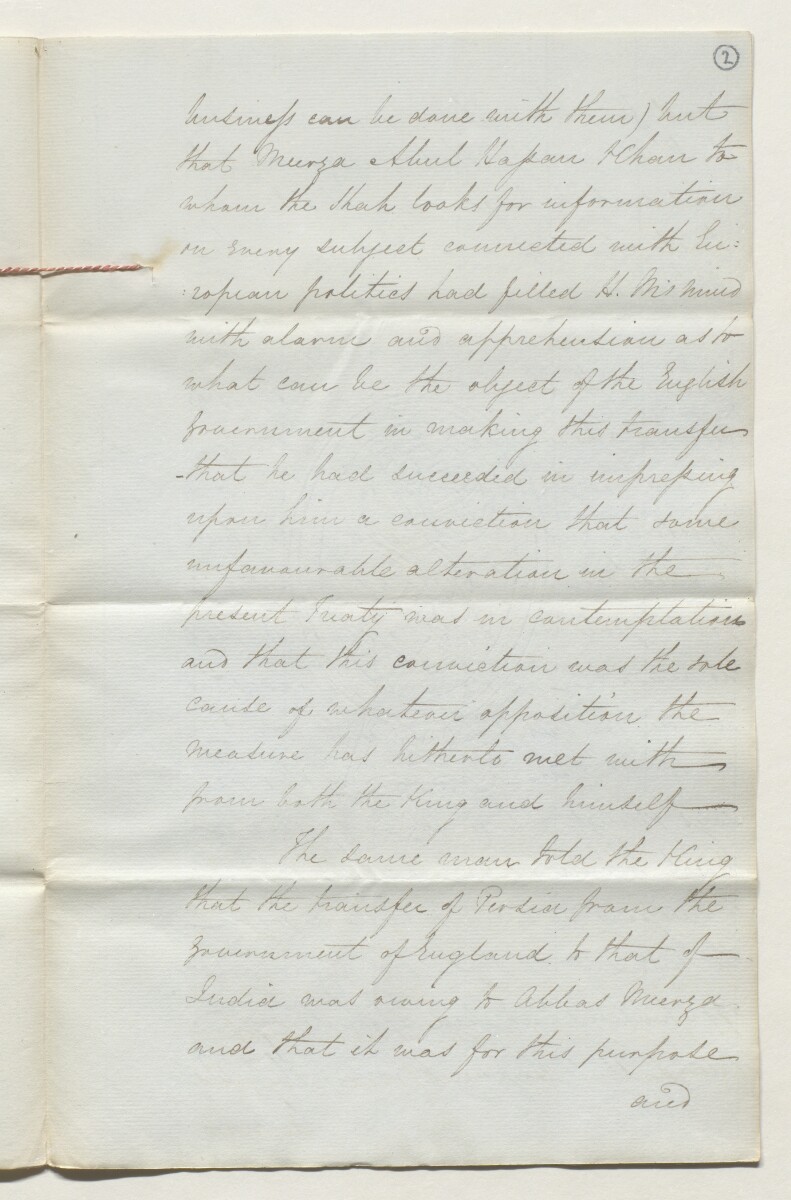 2
business can be done with them) but
that Meerza Abul Hassan Khan to
whom the Shah looks for information
on every subject connected with Eu:
:ropean politics had filled H. M's mind
with alarm and apprehension as to
what can be the object of the English
Government in making this transfer
-that he had succeeded in impressing
upon him a conviction that some
unfavourable alteration in the
present Treaty was in contemplation
and that this conviction was the sole
cause of whatever opposition the
measure has hitherto met with
from both the King and himself—
The same man told the King
that the transfer of Persia from the
Government of England to that of
India was owing to Abbas Meerza
and that it was for this purpose
and